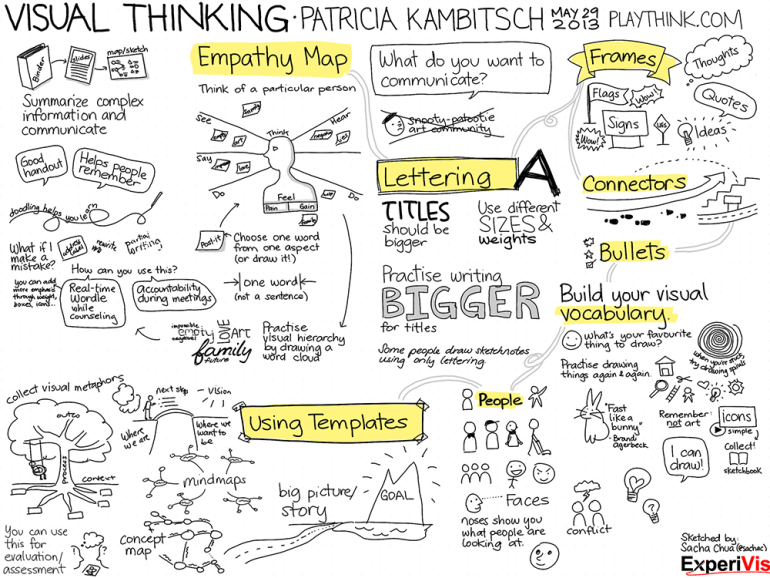 VISUAL THINKING · PATRICIA KAMBITSCH MAY 29 2013 PLAYTHINK.COM
Binder
slides
map/sketch
Summarize complex
information and
communicate
Good
handout
Helps people
remember
doodling helps you
What if I
make a
mistake?
address
labels
rewrite
partial
writing
you can add
more emphasis
through weight,
boxes, icons...
How can you use this?
Real-time
Wordle
while
counseling
Accountability
during meetings
Empathy Map
Think of a particular person
See
Think
Hear
Say
Do
Do
Feel
Pain
Gain
family
Post-it
Choose one word
from one aspect
(or draw it!)
one word
(not a sentence)
impossible
empty
negatives
LOVE
ART
family
future
Practise
visual hierarchy
by drawing a
word cloud
What do you want to
communicate?
snooty-patootie
art community
Lettering A
TITLES
should be
bigger
Use different
SIZES &
weights
Practise writing
BIGGER
for titles
Some people draw sketchnotes
using only lettering.
Frames
Thoughts
Flags
Wow!
Quotes
Wow!
Signs
Ideas
Connectors
Bullets
Build your visual
vocabulary.
What's your favourite
thing to draw?
when you're stuck,
try drawing spirals
Practise drawing
things again & again.
"Fast
like a
bunny"
-Brandy
Agerbeck
Remember:
not art
icons
simple
collect!
sketchbook
I can
draw!
conflict
People
Faces
noses show you
what people are
looking at.
Using Templates
collect visual metaphors
outco
process
context
next step
Vision
Where
we are
Where we
want to
be
mindmaps
concept
map
big picture/
story
GOAL
You can use
this for
evaluation/
assessment
Sketched by:
Sacha Chua (@sachac)
ExperiVis